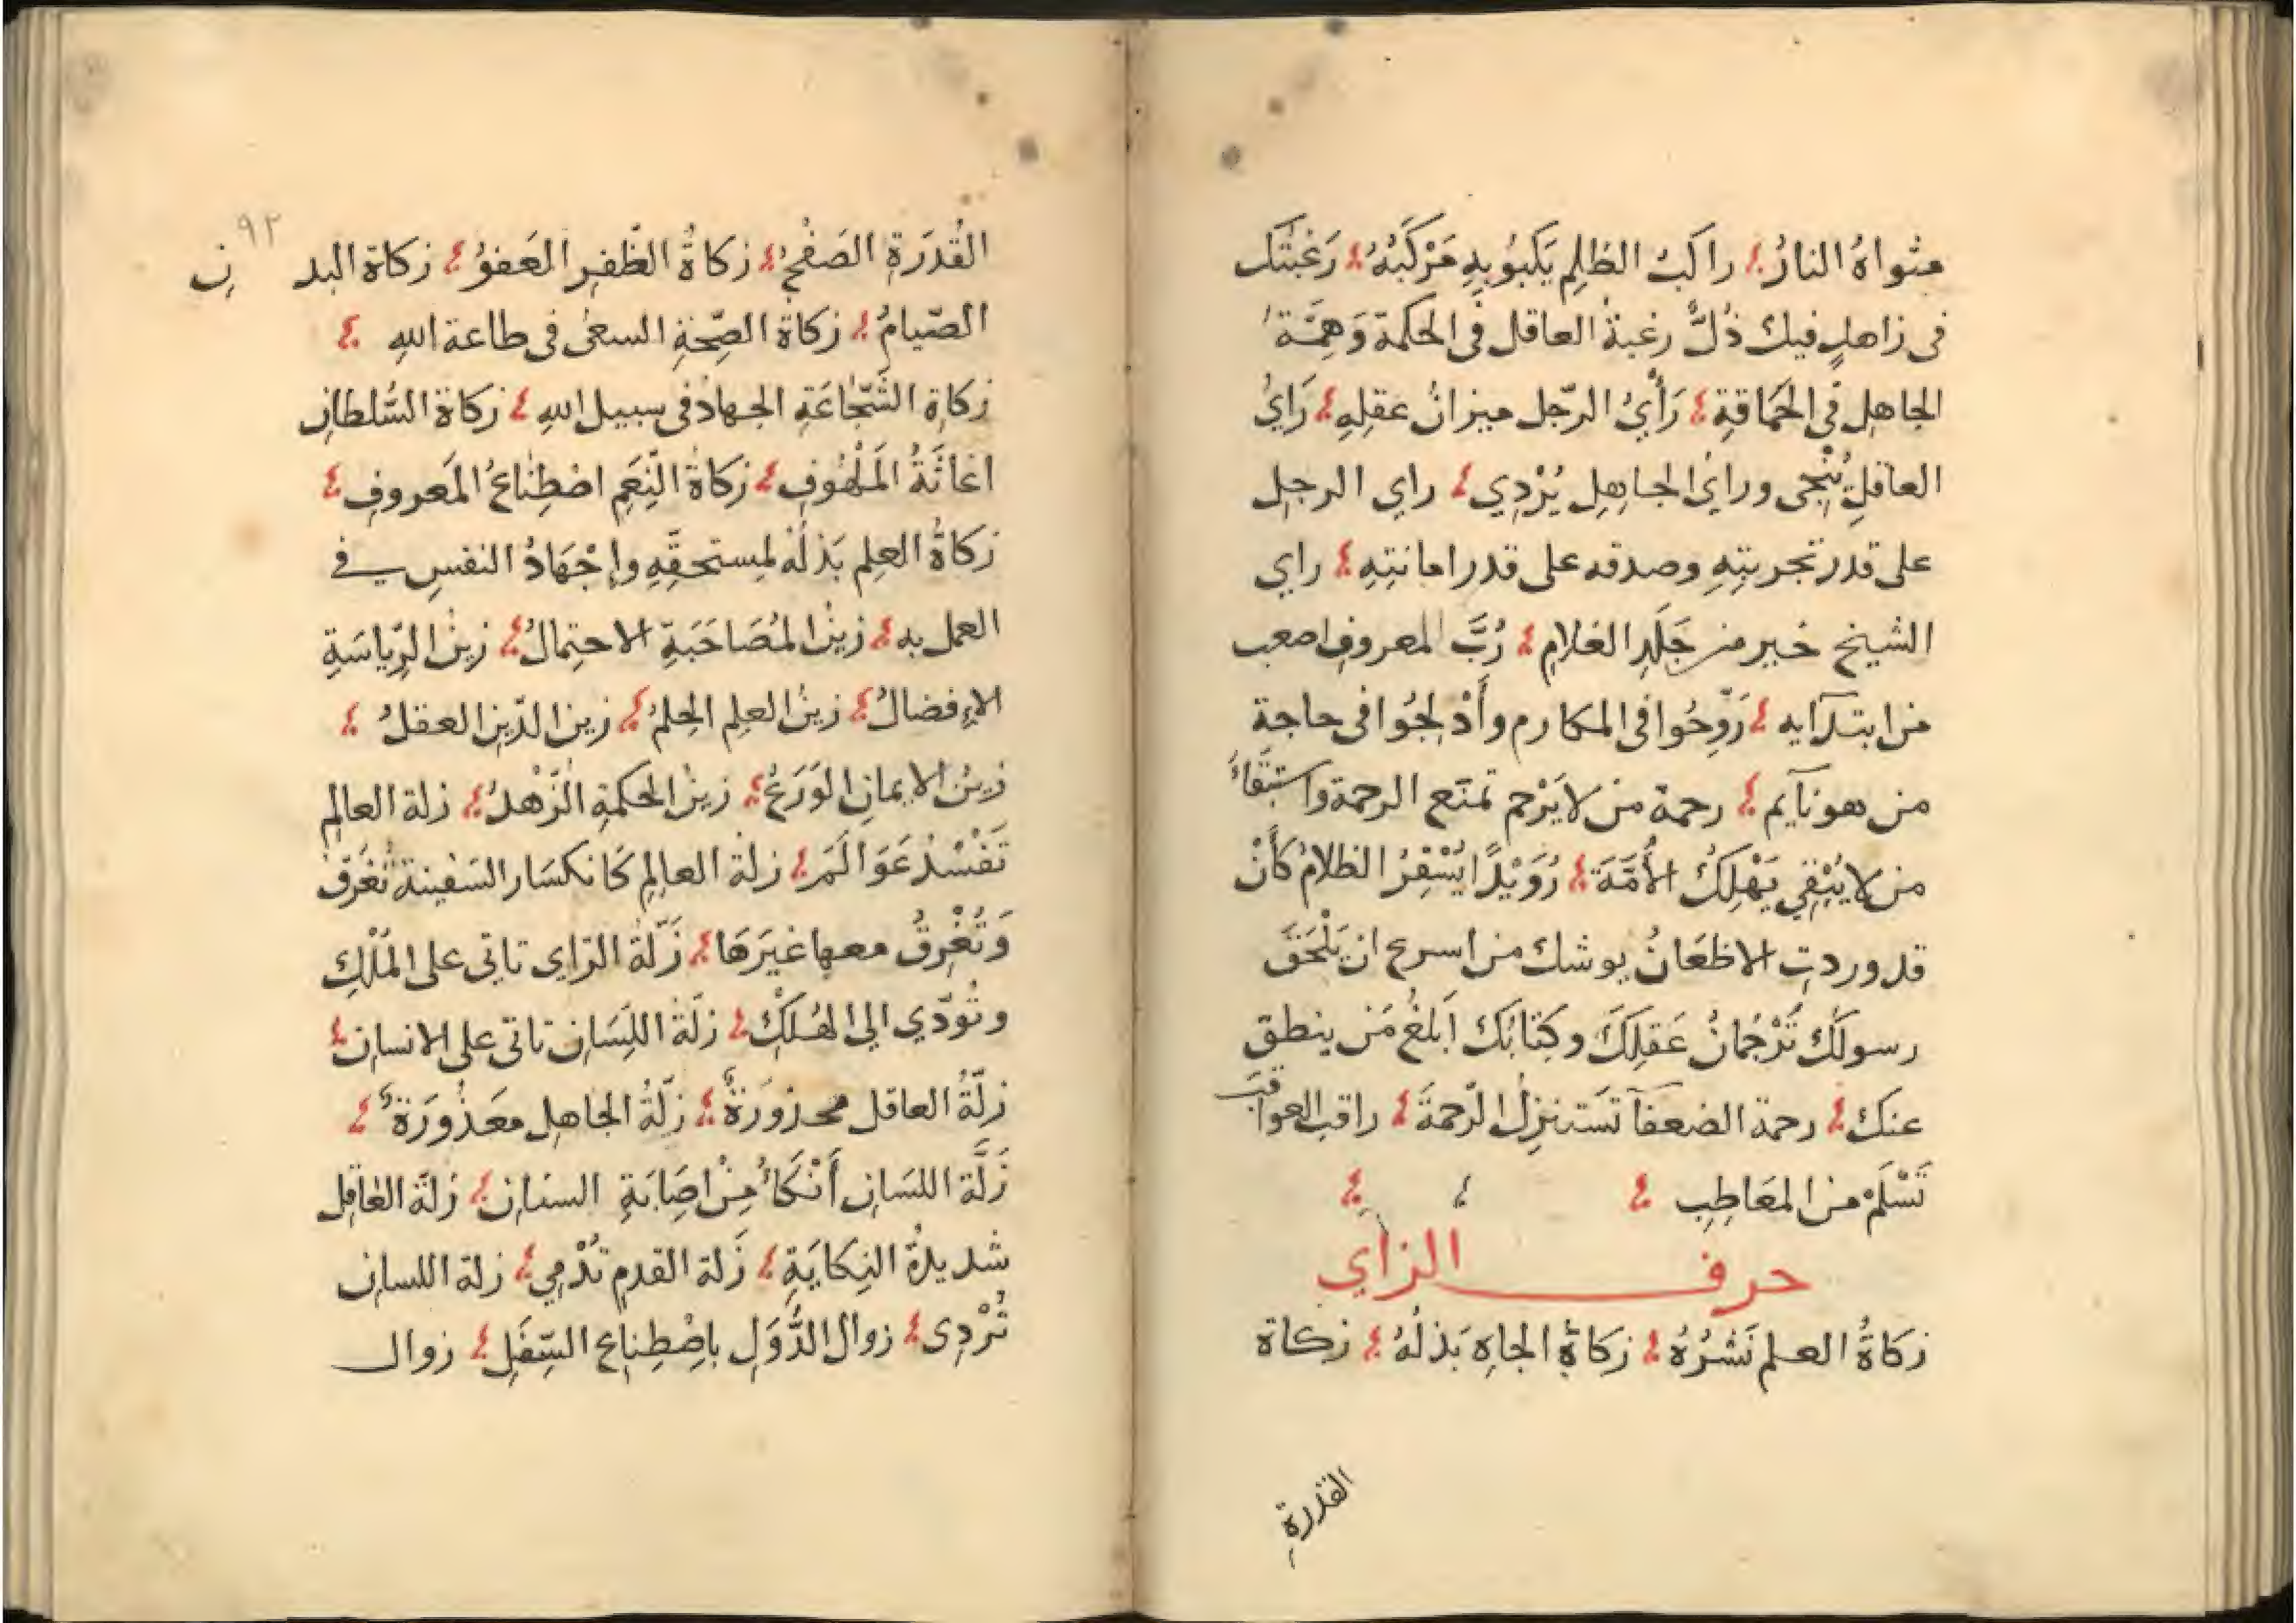 مثواهُ النارُ ؛ راكبُ الظلِم يَكبُو بِهِ مَرْكَبُهُ ؛ رَغبتُك
فى زاهدٍ فيك ذُلٌّ رغبةُ العاقل فى الحكمة وَهِمَّةُ
الجاهِل فى الحَماقةِ ؛ رَأيُ الرّجل ميزانُ عقلِهِ ؛ رَايُ
العاقلِ يُنْجى ورايُ الجاهِلِ يُرْدِي ؛ راي الرجل
على قدر تجربتِهِ وصدقه على قدر امانتِهِ ؛ راي
الشيخ خير من جَلَدِ الغلامِ ؛ رُبَّ المعروفِ اصعب
من ابتدآيه ؛ رَوِّحُوا فى المكارم وأَدْلِجُوا فى حاجة
من هو نآيم ؛ رحمة من لا يَرْحم تمنَع الرحمة واستِبقَاءُ
من لا يُبْقِي يَهْلِكُ الأُمَّةَ ؛ رُوَيْدًا يُسْفِرُ الظلامُ كَأَنْ
قد وردتِ الاظعَانُ يوشك من اسرع ان يَلْحَقَ
رسولُكَ تَرْجُمانُ عَقلِكَ وكِتابُكَ اَبلغُ مَن ينطق
عنك ؛ رحمة الضعفآ تَستنزِلُ الرّحمةَ ؛ راقب العواقبَ
تَسْلَمْ من المعَاطِبِ ؛ ؛ ؛
حرف الزاي
زكاةُ العلم نَشرُهُ ؛ زكاةُ الجاهِ بَذلُهُ ؛ زكاة
القدرةِ
٩٢
القُدرَةِ الصَفْحُ ؛ زكاةُ الظّفرِ العَفوُ ؛ زكاة البدنِ
الصّيامُ ؛ زكاة الصِّحّةِ السعىُ فى طاعة اللهِ ؛
زكاةِ الشَّجَاعَةِ الجهادُ فى سبيل اللهِ ؛ زكاة السُّلطانِ
اغاثَةُ المَلْهُوفِ ؛ زكاةُ النِّعَمِ اصْطِناعُ المَعروفِ ؛
زكاةُ العِلم بَذلُهُ لمِستحقِّهِ وإجْهَادُ النفسِ في
العمل به ؛ زينُ المُصَاحَبَةِ الاحتِمالُ ؛ زينُ الرِّياسَةِ
الاِفضالُ ؛ زينُ العلِم الحِلمُ ؛ زين الدّينِ العقلُ ؛
زينُ الايمانِ الوَرَعُ ؛ زينُ الحكمةِ الزُّهْدُ ؛ زلة العالِم
تَفْسُدُ عَوَالَمَ ؛ زلة العالِم كَانكسَار السَفينة تُغْرَقُ
وَتُغْرِقُ معها غيرَهَا ؛ زَلّةُ الرّاى تاتى على المُلْكِ
وتُؤدّي الي الهُلكِ ؛ زلّة اللِّسَانِ تاتى على الانسانِ ؛
زلّةُ العاقل محذورَةٌ ؛ زلّةُ الجاهِلِ معَذُورَةٌ ؛
زَلَّة اللسَانِ أَنْكَاُ مِنْ اصَابَةِ السنانِ ؛ زلّة العاقِل
شديدةُ النِكايَةِ ؛ زَلة القدمِ تُدْمِي ؛ زلة اللسانِ
تُرْدِى ؛ زوال الدُّوَلِ باصْطِناعِ السِّفَلِ ؛ زوال